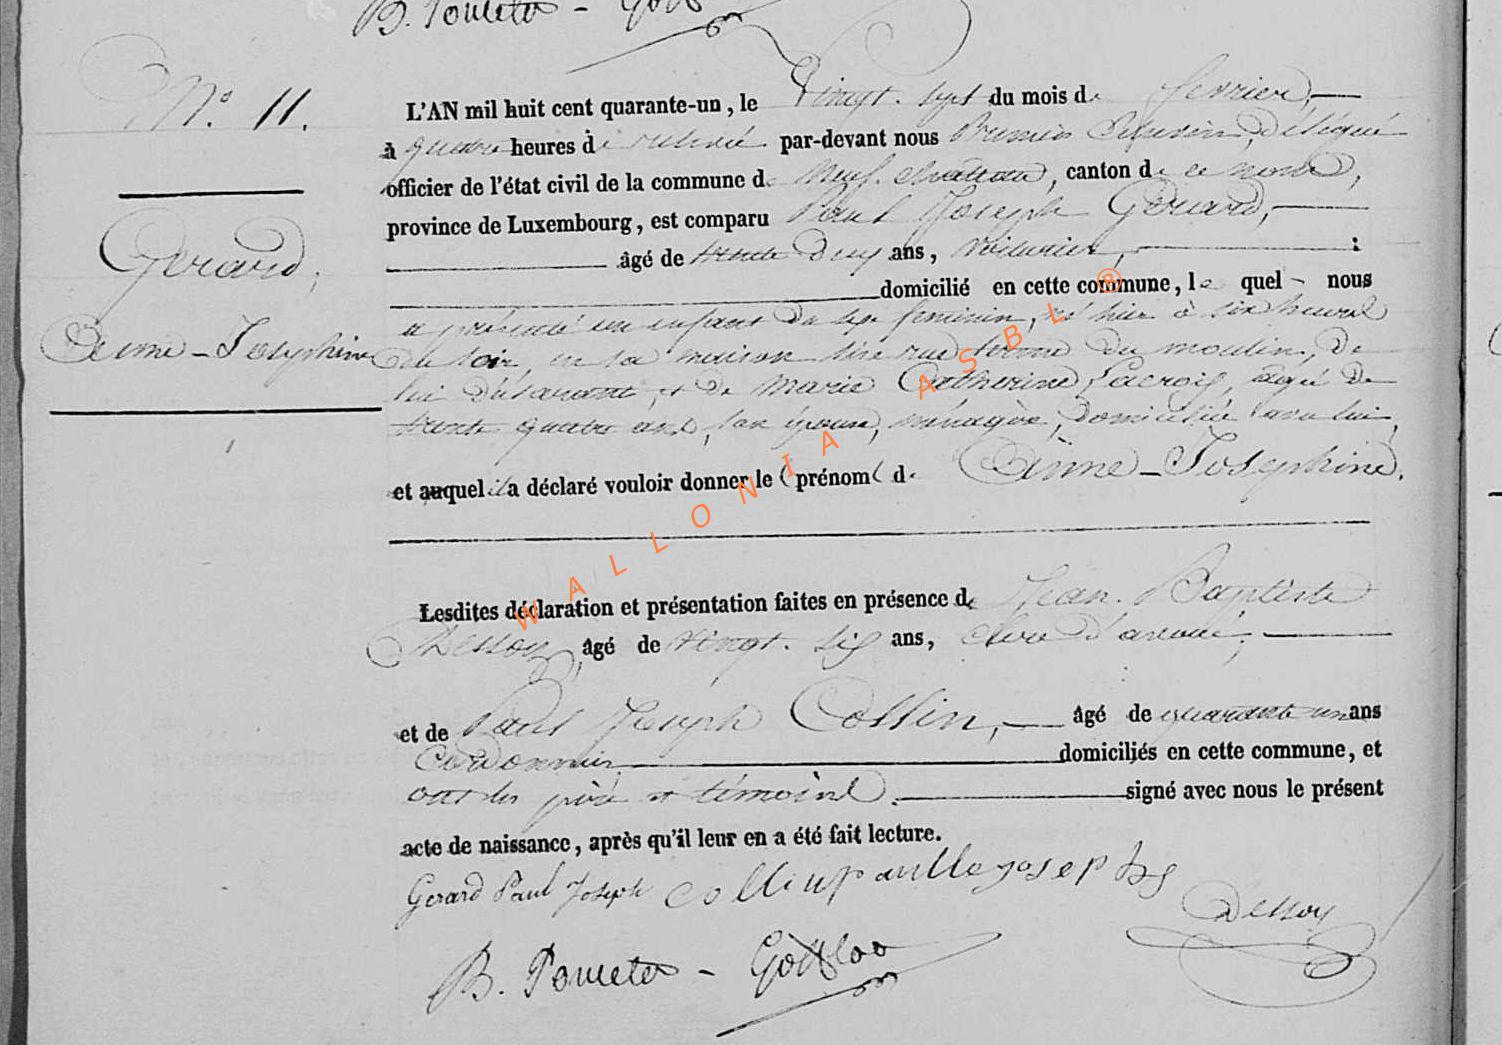 B. Poncelet - Godf
N.° 11.
L'AN mil huit cent quarante-un, le Vingt-sept du mois de février,
à quatre heures de relevée par-devant nous Premier Echevin, délégué
officier de l'état civil de la commune de Neufchâteau, canton de ce nom,
province de Luxembourg, est comparu Paul Joseph Gérard,
Gérard,
âgé de trente deux ans, voiturier, :
domicilié en cette commune, lequel nous
a présenté un enfant du sexe feminin, né hier à six heures
Anne-Josephine
du soir, en sa maison sise rue du moulin, de
lui déclarant, et de Marie Catherine Lacroix, âgée de
trente quatre ans, son épouse, ménagère, domiciliée avec lui,
et auquel il a déclaré vouloir donner le prénom de Anne-Josephine.
Lesdites déclaration et présentation faites en présence de Jean-Baptiste
Dessoy, âgé de vingt-six ans, clerc d'avoué,
et de Paul Joseph Collin, âgé de quarante un ans
Cordonnier, domiciliés en cette commune, et
ont les père et témoins signé avec nous le présent
acte de naissance, après qu'il leur en a été fait lecture.
Gerard Paul Joseph Collin paulle josephs
Dessoy
B. Poncelet -
WALLONIA ASBL ®